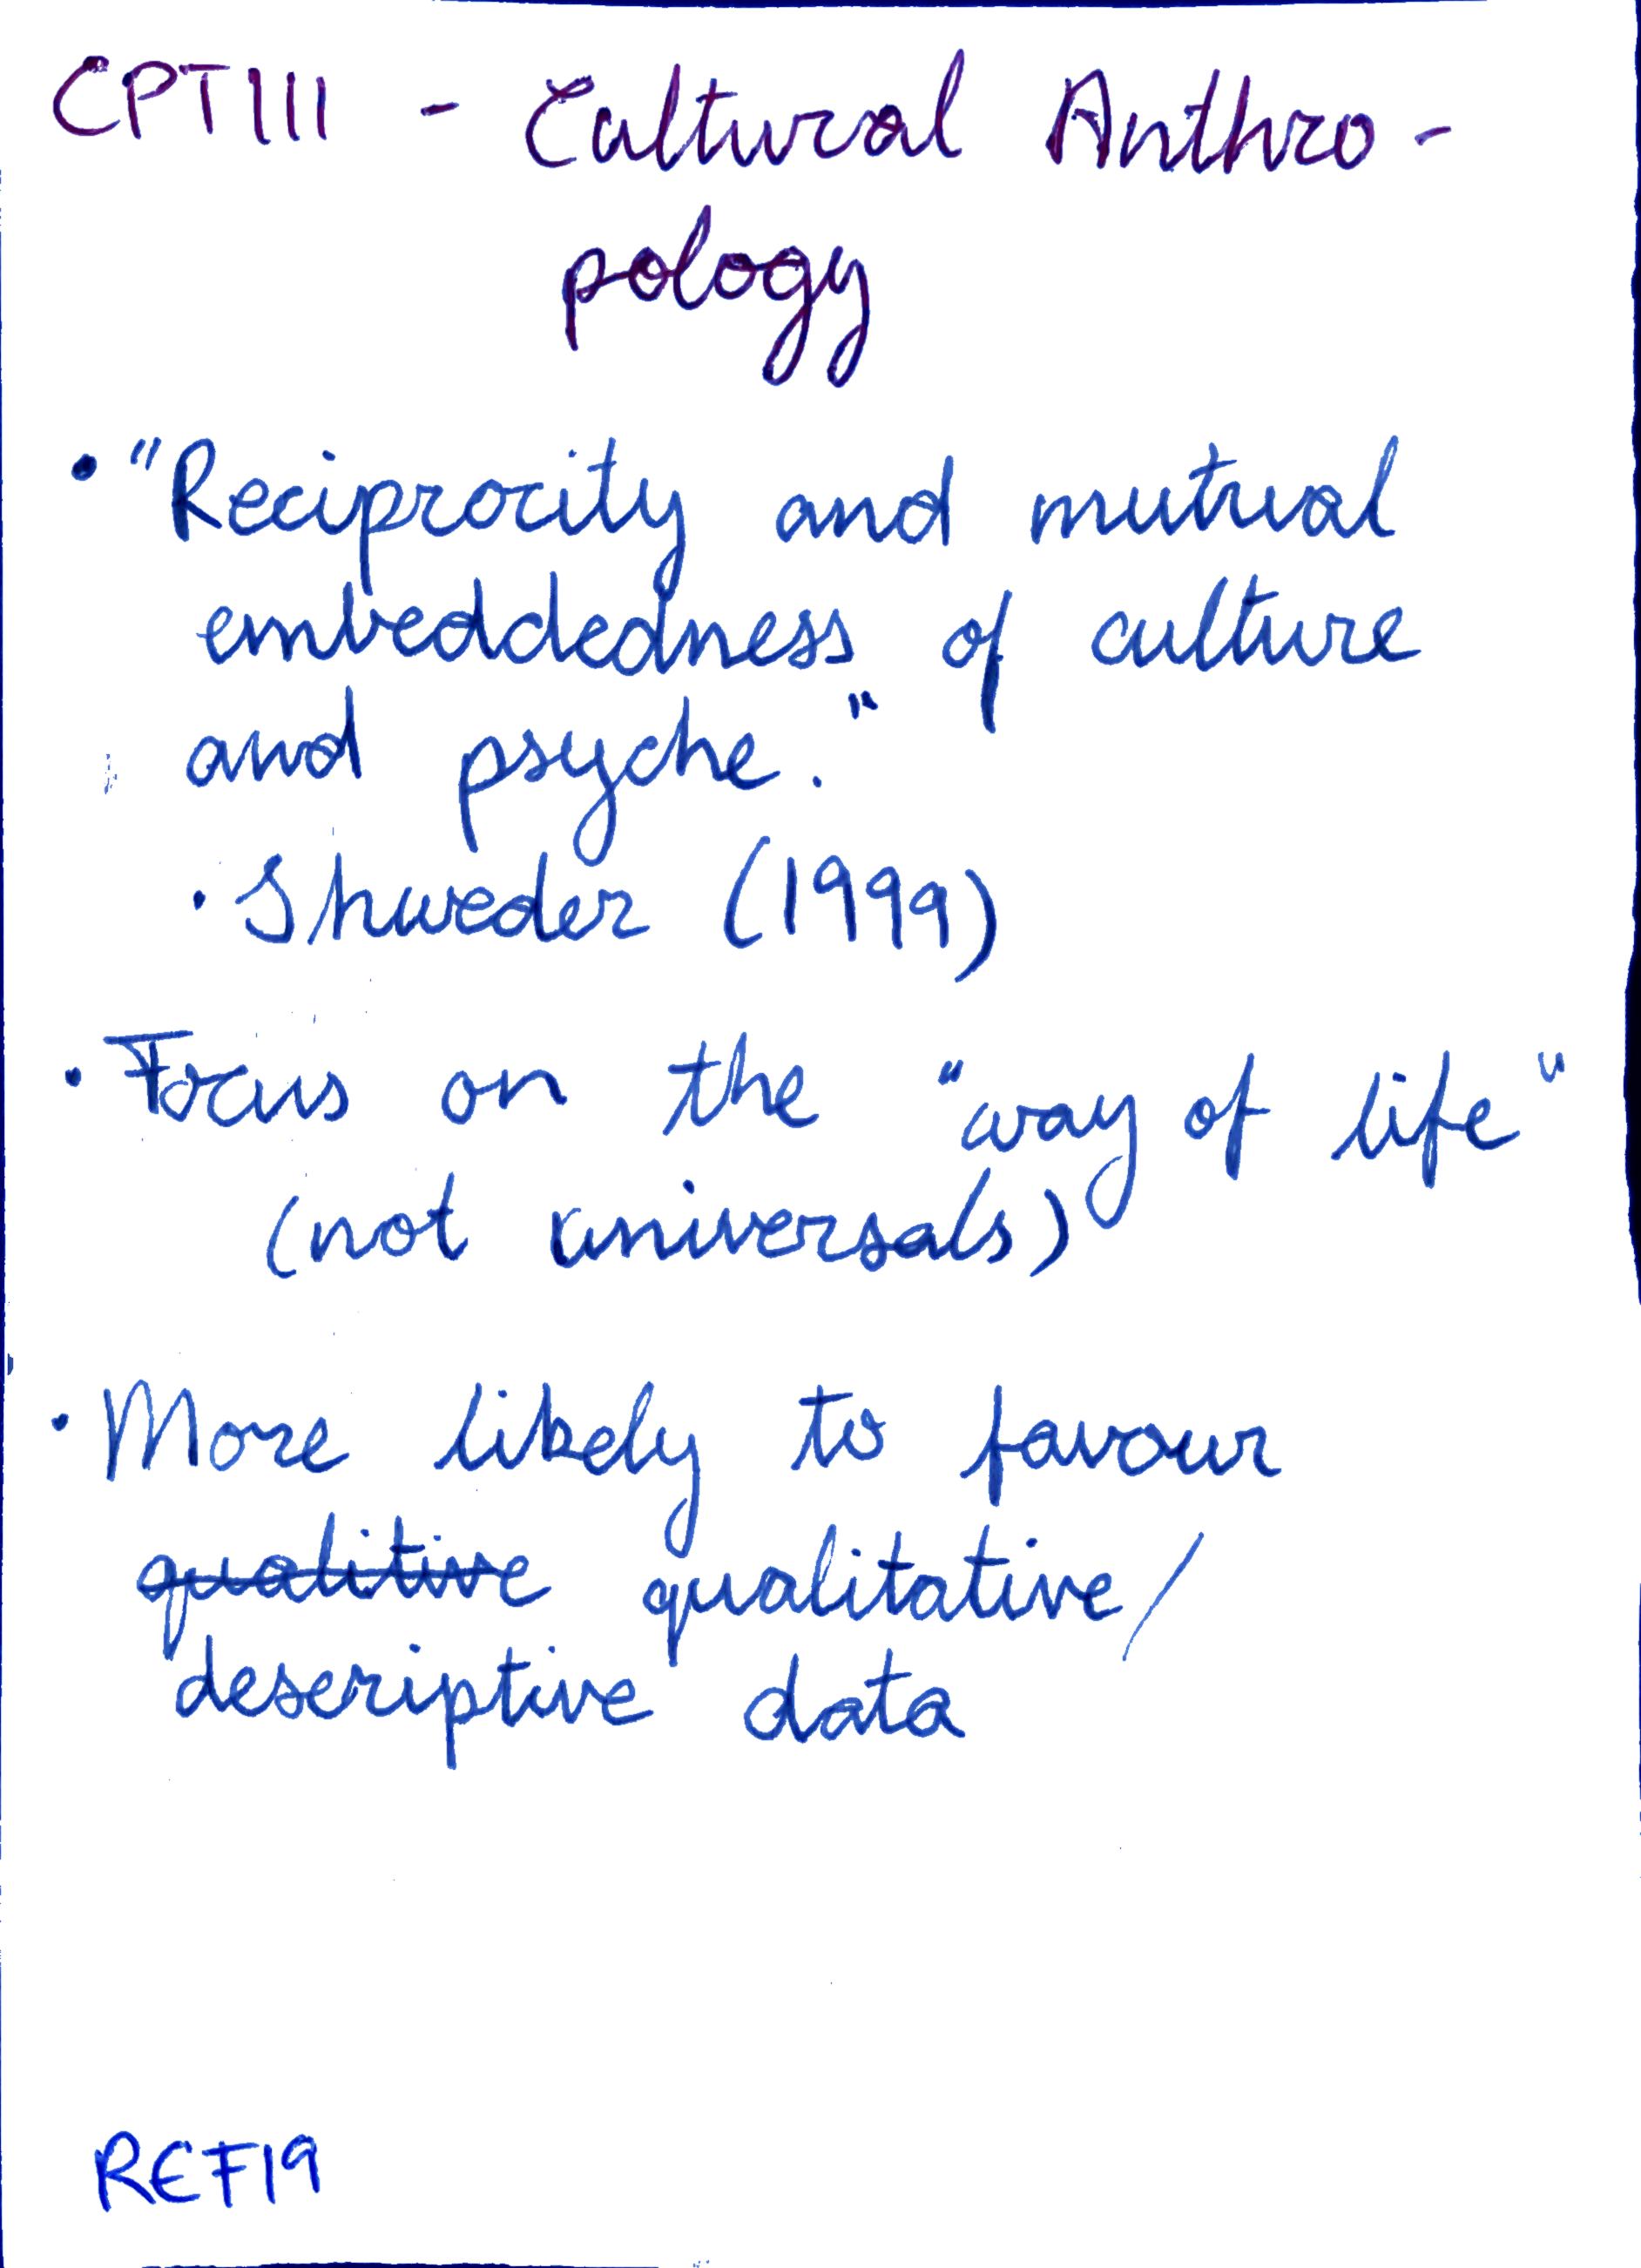 CPT111 - Cultural Anthro-
pology
• "Reciprocity and mutual
embeddedness of culture
and psyche."
• Shweder (1999)
• Focus on the "way of life"
(not universals)
• More likely to favour
qualitive qualitative/
descriptive data
REF19